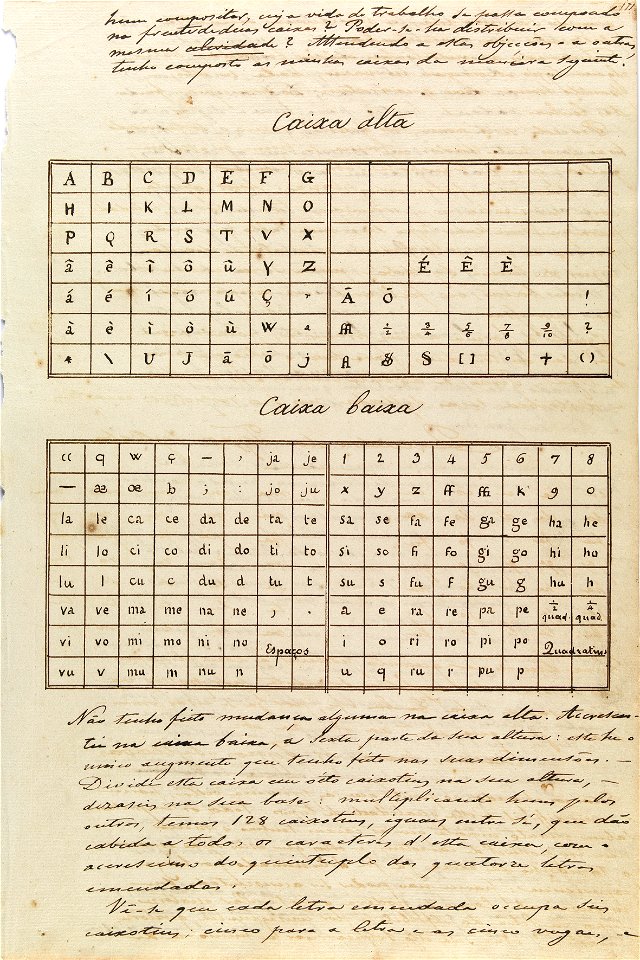 hum compositor, cuja vida de trabalho se passa compondo
na frente de duas caixas? Poder-se-ha distribuir com a
mesma celeridade? Attendendo a estas objecções e a outras,
tenho composto as minhas caixas da maneira seguinte.
Caixa alta
A B C D E F G
H I K L M N O
P Q R S T V X
â ê î ô û Y Z É Ê È
á é í ó ú Ç Ã Õ !
à è ì ò ù W 1/2 3/4 5/6 7/8 9/10 ?
* \ U J ã õ j § [ ] ° + ( )
Caixa baixa
(( q w ç — ' ja je 1 2 3 4 5 6 7 8
— æ œ b ; : jo ju x y z ff ffi k 9 0
la le ca ce da de ta te sa se fa fe ga ge ha he
li lo ci co di do ti to si so fi fo gi go hi ho
lu l cu c du d tu t su s fu f gu g hu h
va ve ma me na ne , . a e ra re pa pe 1/2 quad. 1/4 quad.
vi vo mi mo ni no Espaços i o ri ro pi po Quadratins
vu v mu m nu n u q ru r pu p
Não tenho feito mudança alguma na caixa alta. Acrescen-
tei na caixa baixa, a sexta parte da sua altura: este he o
unico augmento que tenho feito nas suas dimensões. —
Dividi esta caixa em oito caixotins na sua altura, —
dezaseis na sua base: multiplicando huns pelos
outros, temos 128 caixotins, iguaes entre si, que dão
cabida a todos os caracteres d'esta caixa, com o
accrescimo do quintuplo das quatorze letras
emendadas.
Vê-se que cada letra emendada occupa seis
caixotins; cinco para a letra e as cinco vogaes, e